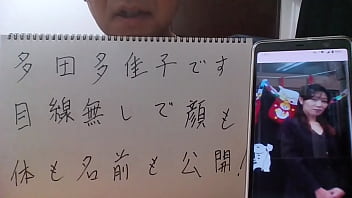 多田多佳子です
目線無しで顔も
体も名前も公開!